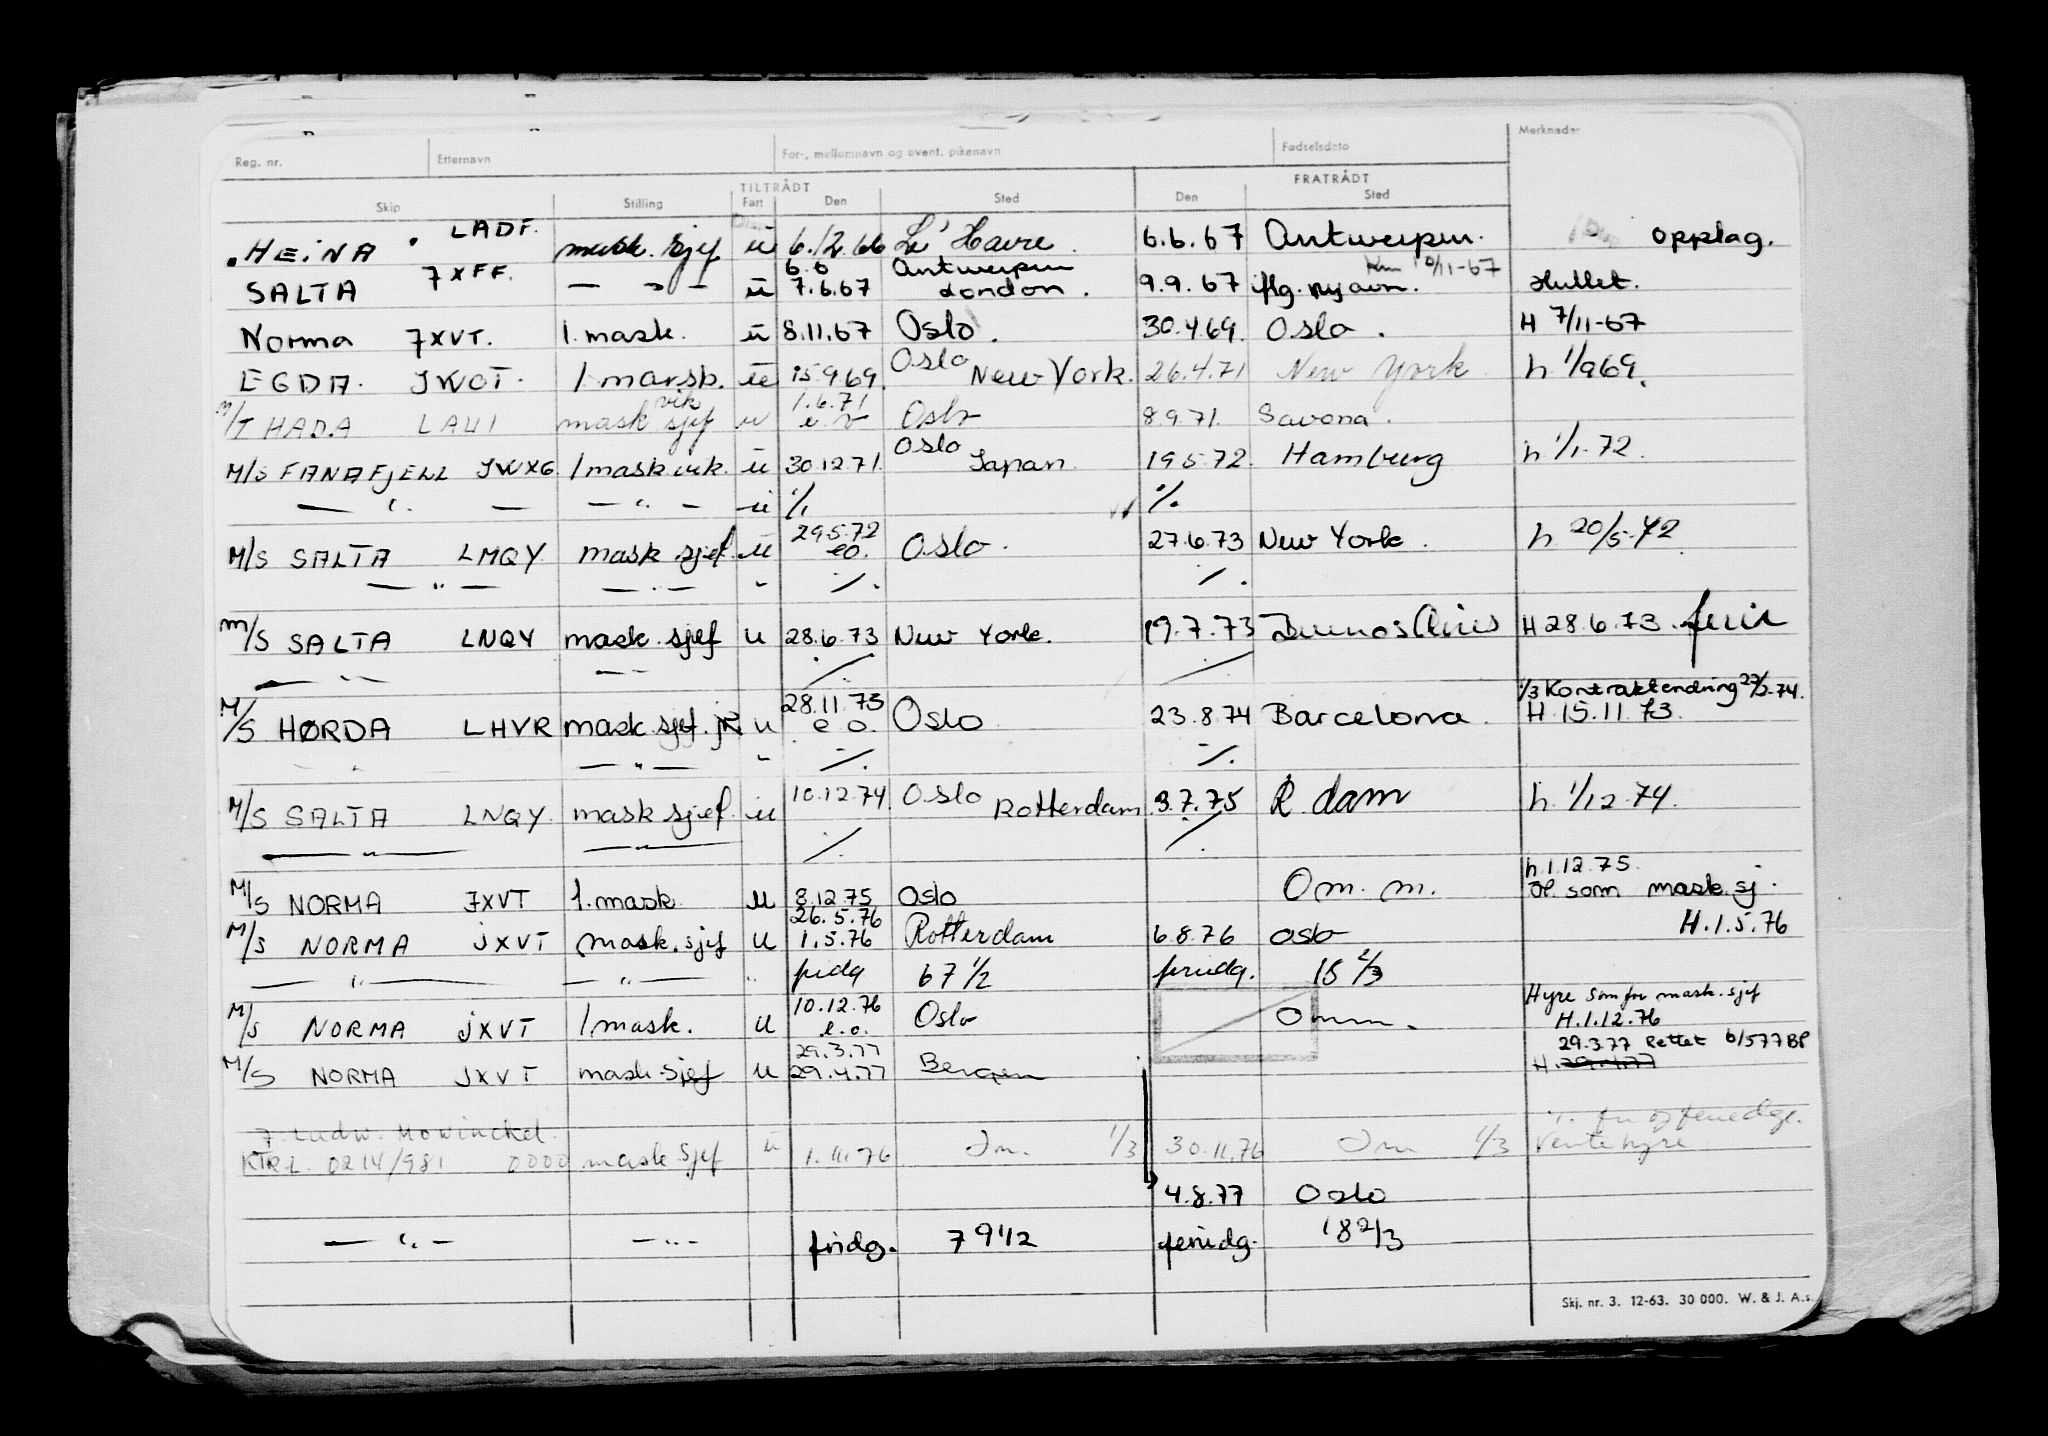 Reg. nr. Etternavn For-, mellomnavn og event. pikenavn Fødselsdato Merknader
TILTRÅDT FRATRÅDT
Skip Stilling Fart Den Sted Den Sted
HEINA LADF. mask. sjef u 6.12.66 Le' Havre. 6.6.67 Antwerpen. Opplag.
SALTA 7XFF. — " — u 6.6 7.6.67 Antwerpen London. 9.9.67 flg. 10/11-67 Hullet.
Norma JXVT. 1. mask. u 8.11.67 Oslo. 30.4.69. Oslo. H 7/11-67
EGDA. JWOT. 1 marsk. u 15.9.69. Oslo New York. 26.4.71 New York. h 1/9 69.
M/T HADA LAUI mask sjef vik u 1.6.71 e.o Oslo 8.9.71. Savona.
M/S FANAFJELL JWXG. 1 mask vik. u 30.12.71. Oslo Japan. 19.5.72. Hamburg h 1/1-72.
— " — — " — u ./. ./.
M/S SALTA LMQY. mask sjef. u 29.5.72 eo. Oslo. 27.6.73 New York. h 20/5-72.
— " — — " — " ./. ./.
M/S SALTA LNQY mask. sjef u 28.6.73 New York. 19.7.73 Buenos Aires H 28.6.73.
— " — — " — ./. ./.
M/S HØRDA LHVR mask. sjef. jR u 28.11.73 e o. Oslo 23.8.74 Barcelona. 1/3 Kontraktendring 22/2-74. H. 15.11.73.
" — " — " ./. ./.
M/S SALTA LNQY. mask sjef. u 10.12.74. Oslo Rotterdam. 3.7.75 R dam h. 1/12-74.
— " — — " — ./. ./.
M/S NORMA JXVT 1. mask. u 8.12.75 Oslo Om. m. h. 1.12.75. som mask. sj.
M/S NORMA JXVT mask. sjef u 26.5.76 1.5.76 Rotterdam 6.8.76 Oslo H. 1.5.76
— " — — " — " fridg 67 1/2 feriedg. 15 2/3
M/S NORMA JXVT 1 mask. u 10.12.76 e.o. Oslo Omm. Hyre som for mask. sjef H. 1.12.76
M/S NORMA JXVT mask. sjef u 29.3.77 29.4.77 Bergen 29.3.77 Rettet 6/5 77 BP H. 29.4.77
J. Ludw. Mowinckel.
KTR.L. 0214/981 0000 mask sjef u 1.11.76 Om. 1/3 30.11.76 Om 1/3 Ventehyre
4.8.77 Oslo
— " — — " — fridg. 79 1/2 feriedg. 18 2/3
Skj. nr. 3. 12-63. 30 000. W. & J. A.s.